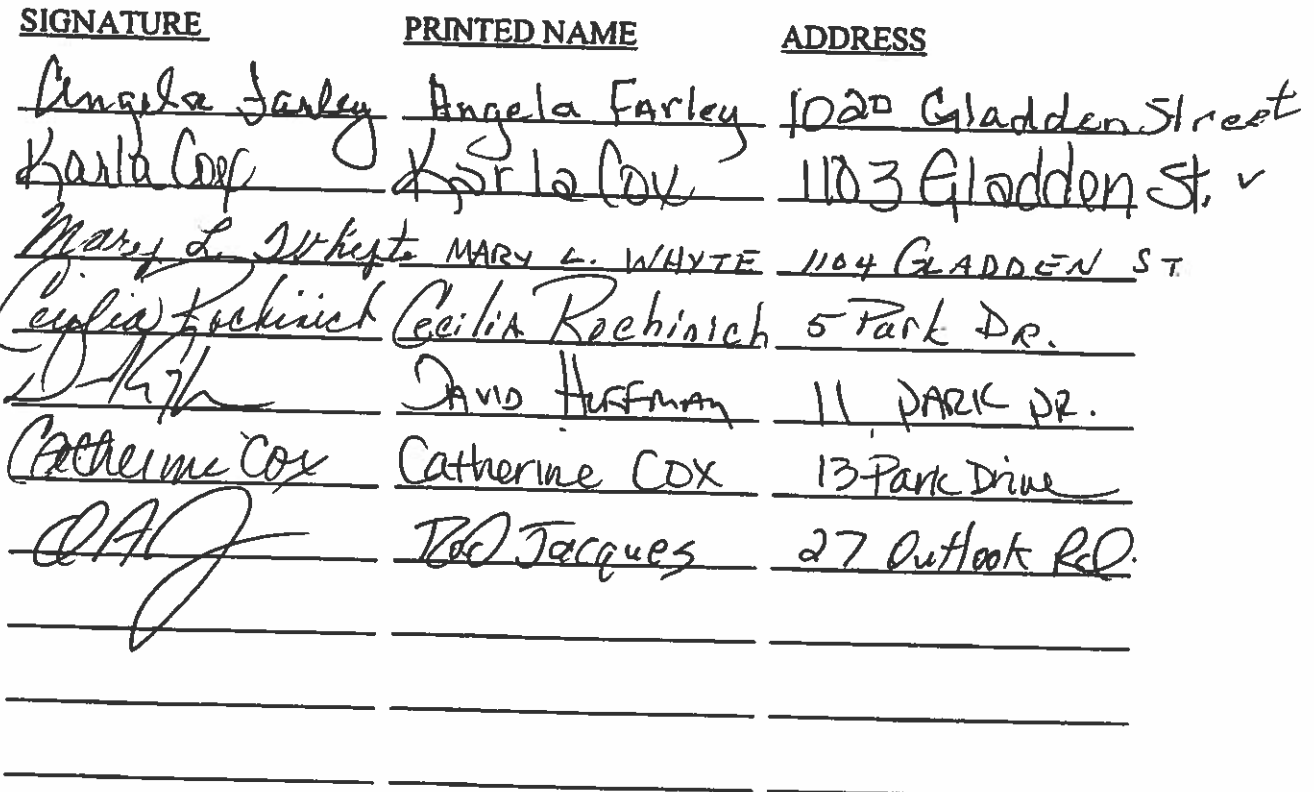 SIGNATURE PRINTED NAME ADDRESS
Angela Farley Angela Farley 1020 Gladden Street
Karla Cox Karla Cox 1103 Gladden St. ✓
Mary L. Whyte MARY L. WHYTE 1104 GLADDEN ST
Cecilia Rochinich Cecilia Rochinich 5 Park DR.
DAVID HUFFMAN 11 PARK DR.
Catherine Cox Catherine COX 13 Park Drive
Rod Jacques 27 Outlook Rd.